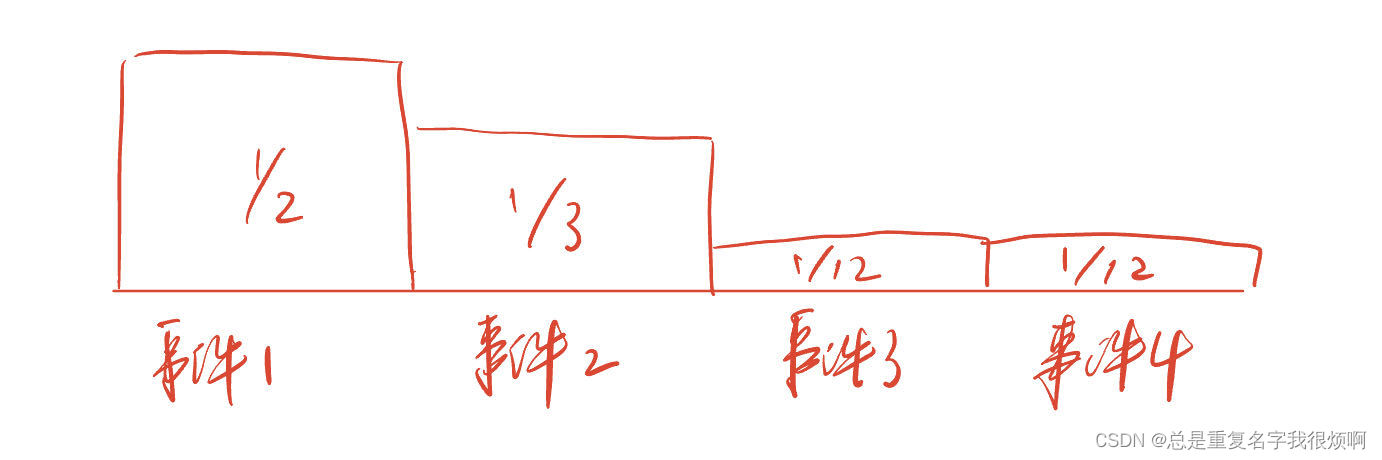 1/2
1/3
1/12
1/12
事件1
事件2
事件3
事件4
CSDN @总是重复名字我很烦啊